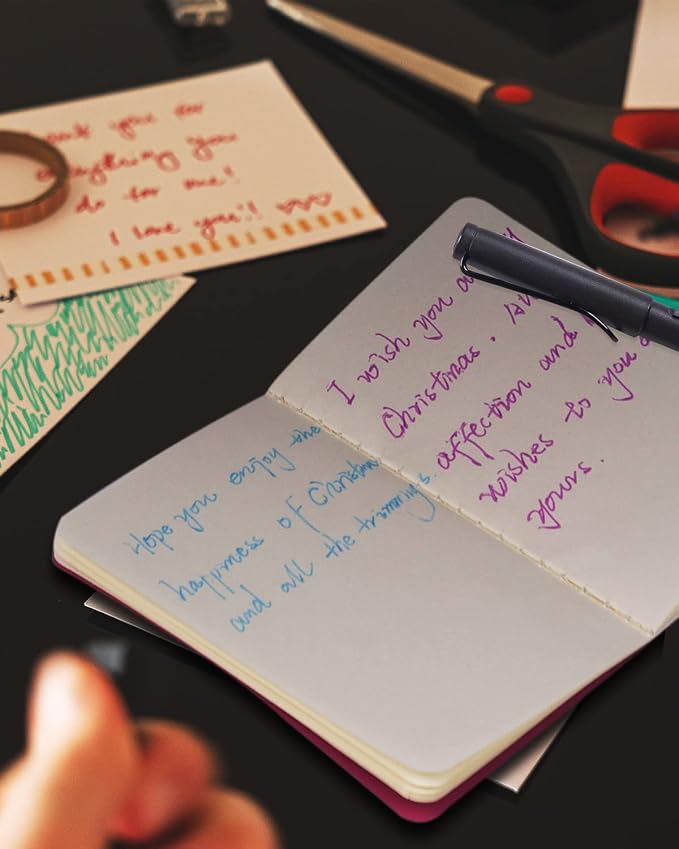 you for
everything you
do for me!
I love you!!
Hope you enjoy the
happiness of Christmas
and all the trimmings.
I wish you a
Christmas.
affection and
wishes to you
yours.